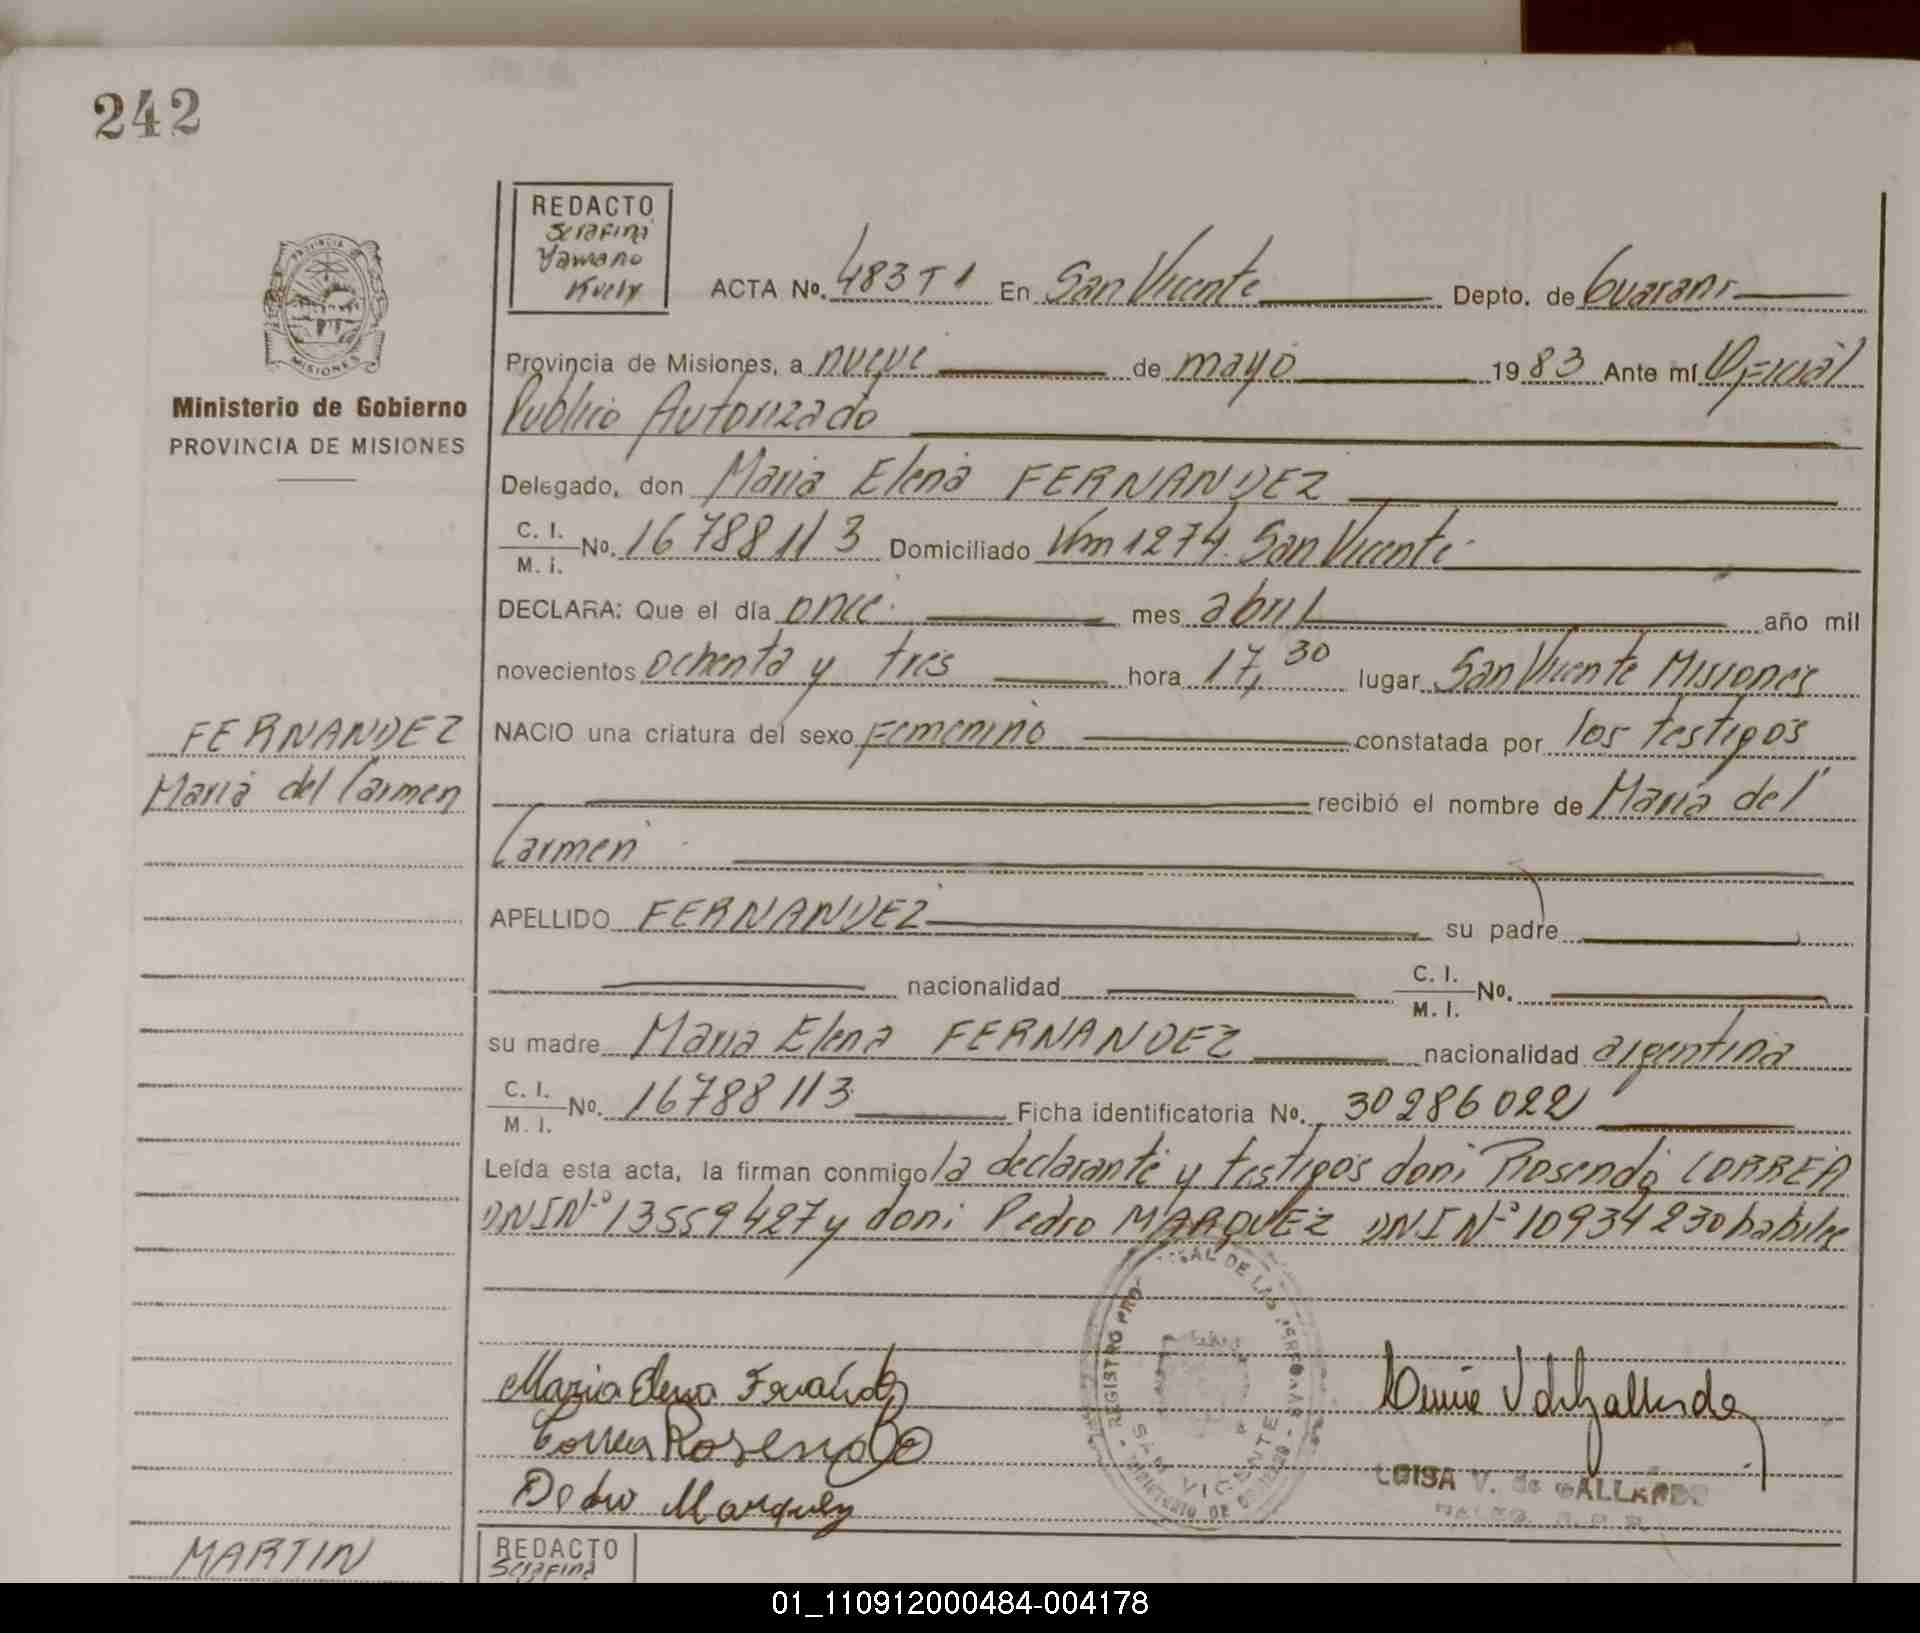 242
REDACTO
Serafina
Yamano
Kuely
ACTA No. 483 T 1 En San Vicente Depto. de Guarani
Provincia de Misiones, a nueve de mayo 1983 Ante mí Oficial
Publico Autorizado
Ministerio de Gobierno
PROVINCIA DE MISIONES
Delegado, don Maria Elena FERNANDEZ
C. I.
M. I. No. 16788113 Domiciliado Km 1274. San Vicente
DECLARA: Que el día once mes abril año mil
novecientos ochenta y tres hora 17,30 lugar San Vicente Misiones
NACIO una criatura del sexo femenino constatada por los testigos
recibió el nombre de Maria del
Carmen
FERNANDEZ
Maria del Carmen
APELLIDO FERNANDEZ su padre
nacionalidad C. I.
M. I. No.
su madre Maria Elena FERNANDEZ nacionalidad argentina
C. I.
M. I. No. 16788113 Ficha identificatoria No. 30286022
Leída esta acta, la firman conmigo la declarante y testigos don: Rosendo CORREA
DNI Nº 13559427 y don: Pedro MARQUEZ DNI Nº 10934230 habiles
Maria Elena Fernández
Correa Rosendo
Pedro Marquez
REGISTRO PRO
DE LAS PERSONAS
SAN VICENTE
LUISA V. de GALLARDO
MARTIN
REDACTO
Serafina
01_110912000484-004178